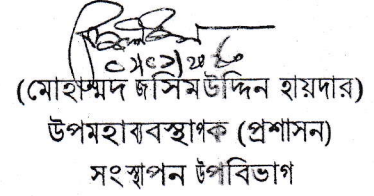 (মোহাম্মদ জসিমউদ্দিন হায়দার)
উপমহাব্যবস্থাপক (প্রশাসন)
সংস্থাপন উপবিভাগ